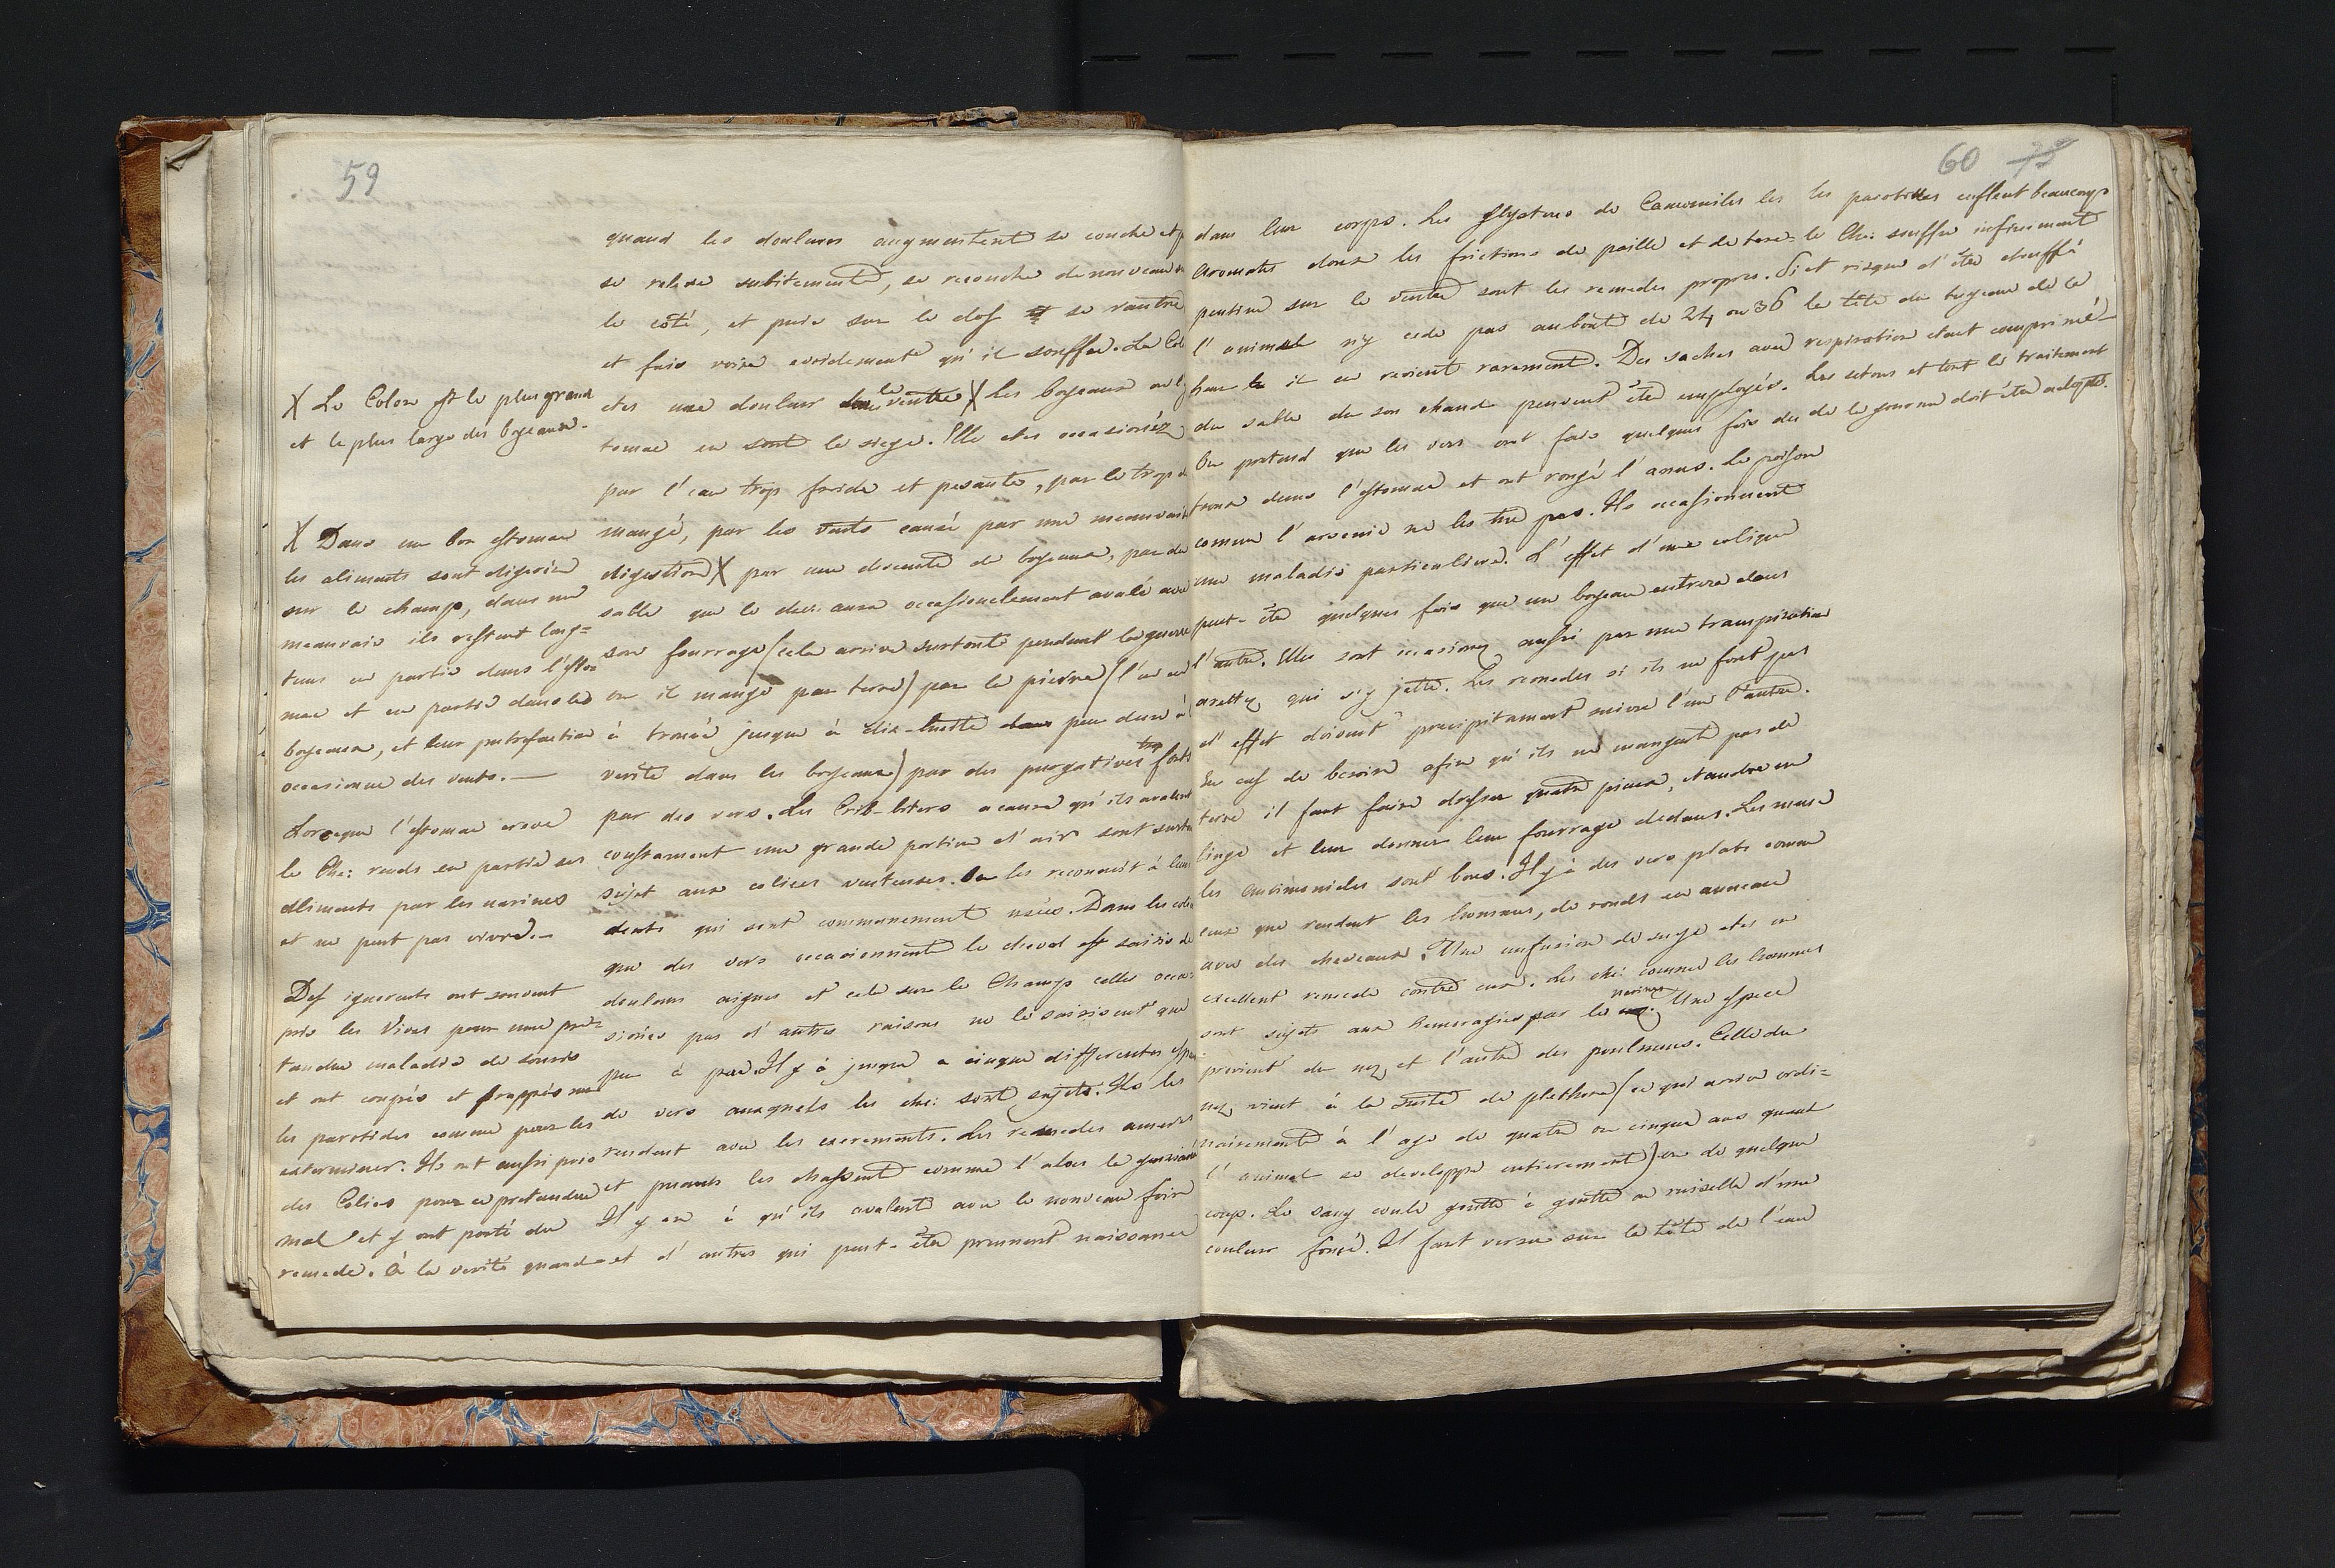 59
X Le Colon est le plus grand
et le plus large des boyeaux.
X Dans un bon estomac
les aliments sont digerés
sur le champ, dans un
meauvais ils restent long=
tems en partie dans l'esto
mac et en partie dans les
boyeaux, et leur putrefaction
occasionne des vents. —
Lorsque l'estomac creve
le Che: rends en partie ses
aliments par les narines
et ne peut pas vivre. —
Des ignorents ont souvent
pris les Vives pour une pré=
tendue maladie de souris
et ont coupés et frappés sur
les parotides comme pour les
exterminer. Ils ont aussi pris
des Colics pour ce pretendu
mal et y ont porté du
remede. à la verité quand
quand les douleurs augmentent se couche et
se releve subitement, se recouche de nouveau
le coté, et puis sur le dos et se vautre
et fais voire evidement qu'il souffre. La Col
etes une douleur dans le ventre X les boyeaux ou l'
tomac en sont le siege. Elle etes occasionéz
par l'eau trop froide et pesante, par le trop
mangé, par les vents causé par une meauvaise
digestion X par une descente de boyeaux, par du
sable que le che: aura occasionelement avalé avec
son fourrage (cela arrive surtoute pendant la guerre
ou il mange par terre) par la pierre (l'on en
à trouvé jusque à dix-huite dans peu dure à
verité dans les boyeaux) par des purgatives trop forts
par des vers. Les Crib-biters a cause qu'ils avalent
constament une grande portion d'air sont surto
sujet aux colices venteuses. On les reconnoit à leurs
dents qui sont communement usées. Dans les colic
que des vers occasionnent le cheval est saisie de
douleurs aigues et cela sur le Champ celles occa=
sionées par d'autres raisons ne le saisisent que
peu à peu. Il y à jusque a cinque differentes espe
de vers auxquels les che: sont sujets. Ils les
rendent avec les excrements. Les remedes amers
et puants les chassent comme l'aloes la gentiane
Il y en à qu'ils avalent avec le nouveau foin
et d'autres qui peut-être prennent naissance
60 75
dans leur corps. Les Glysteres de Camomiles les
Aromates doux les frictions de paille et de tere-
pentine sur le ventre sont les remedes propres. Si
l'animal n'y cede pas au bout de 24 ou 36
heures il en revient rarement. Des saches avec
du sable du son chaud peuvent être employés.
On pretend que les vers ont fais quelques fois des
trous dans l'estomac et ont rongé l'anus. Le poison
comme l'arsenic ne les tue pas. Ils occasionnent
une maladie particuliere. L'effet d'une colique
peut-être quelques fois que un boyeau entrera dans
l'autre. Elles sont occasionez aussi par une transpiration
arettez qui s'y jette. Les remedes si ils ne font pas
d'effet doivent precipitament suivre l'un l'autre.
En cas de besoin afin qu'ils ne mangent pas de
terre il faut faire dresser quatre pieux, etendre un
linge et leur donner leur fourrage dedans. Les mercu
les antimoniales sont bons. Il y à des vers plats comme
ceux que rendent les hommes, de ronds en anneaux
avec des cheveaux. Une infusion de suye etes un
excellent remede contre eux. Les che: comme les hommes
sont sujets aux hemoragies par les narines. Une espece
provient du nez et l'autre des poulmons. Celle du
nez vient à la suite de plethora (ce qui arrive ordi=
nairement à l'age de quatre ou cinque ans quand
l'animal se developpe entierement) ou de quelque
coup. Le sang coule goutte à goutte ou ruiselle d'une
couleur foncé. Il faut verser sur la tête de l'eau
les parotides enflent beaucoup
le Che: souffre infiniment
et risque d'être etouffé
la tête du tuyeau de la
respiration etant comprimé-
Les setons et tout le traitement
de la gourme doit être adopté.